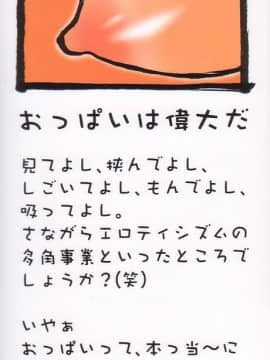 おっぱいは偉大だ
見てよし、挟んでよし、
しごいてよし、もんでよし、
吸ってよし。
さながらエロティシズムの
多角事業といったところで
しょうか?(笑)
いやぁ
おっぱいって、本っ当〜に